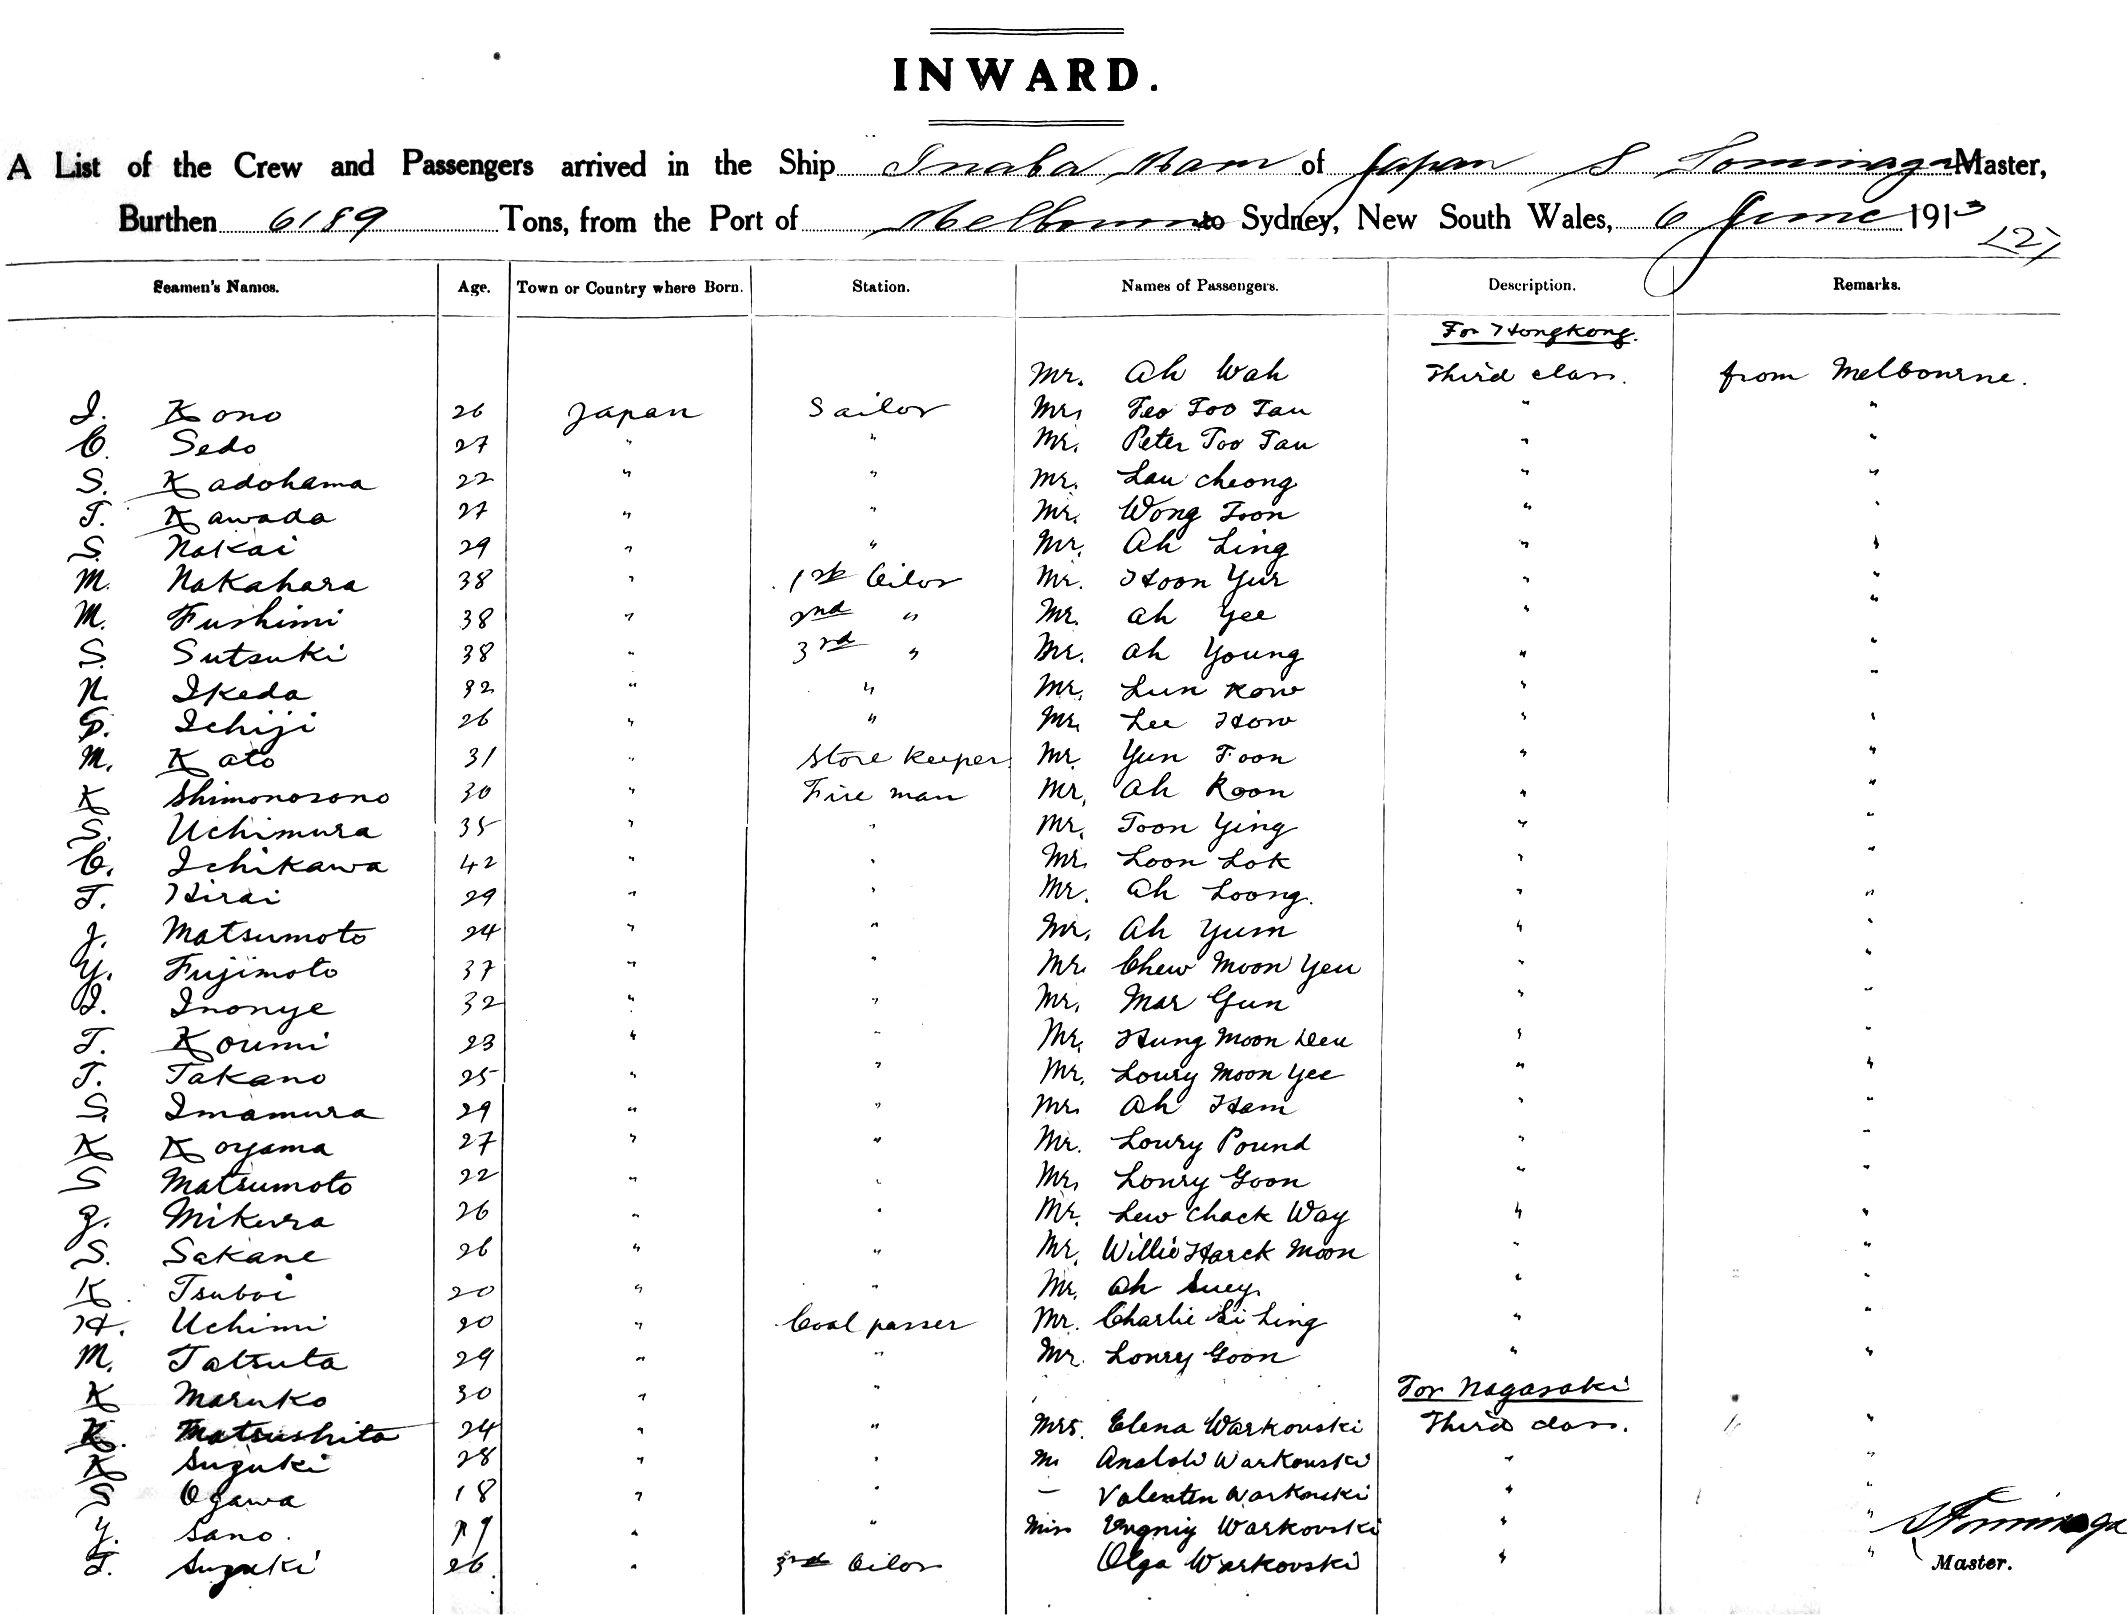 INWARD.
A List of the Crew and Passengers arrived in the Ship Inaba Mam of Japan S Tominaga Master,
Burthen 6189 Tons, from the Port of Melbourne to Sydney, New South Wales, 6 June 1913
Seamen's Names. Age. Town or Country where Born. Station. Names of Passengers. Description. Remarks.
For Hongkong.
Mr. Ah Wah Third class. from Melbourne.
I. Kono 26 Japan Sailor Mr. Feo Foo Tau " "
C. Sedo 27 " " Mr. Peter Too Tau " "
S. Kadohama 22 " " Mr. Lau Cheong " "
T. Kawada 27 " " Mr. Wong Foon " "
S. Nakai 29 " " Mr. Ah Ling " "
M. Nakahara 38 " 1st Oilor Mr. Hoon Yur " "
M. Fushimi 38 " 2nd " Mr. Ah Yee " "
S. Sutsuki 38 " 3rd " Mr. Ah Young " "
N. Ikeda 32 " " Mr. Lun Kow " "
Ichiji 26 " " Mr. Lee How " "
M. Kato 31 " Store keeper Mr. Yun Foon " "
K Shimonosono 30 " Fire man Mr. Ah Koon " "
S. Uchimura 35 " " Mr. Toon Ying " "
C. Ichikawa 42 " " Mr. Loon Lok " "
T. Hirai 29 " " Mr. Ah Loong. " "
J. Matsumoto 24 " " Mr. Ah Yum " "
Y. Fujimoto 37 " " Mr. Chew Moon Yeu " "
I. Inonye 32 " " Mr. Mar Gun " "
T. Koumi 23 " " Mr. Hung Moon " "
T. Takano 25 " " Mr. Loury Moon Yee " "
S. Imamura 29 " " Mr. Ah Ham " "
K Koyama 27 " " Mr. Loury Pound " "
S Matsumoto 22 " " Mr. Loury Goon " "
Z. Mikura 26 " " Mr. Lew Chack Way " "
S. Sakane 26 " " Mr. Willie Harck Moon " "
K. Tsuboi 20 " " Mr. Ah Suey. " "
H. Uchimi 20 " Coal passer Mr. Charlie Si Ling " "
M. Tatsuta 29 " " Mr. Loury Goon " "
K Maruko 30 " " For Nagasaki
K. Matsushita 24 " " Mrs. Elena Warkovski Third class. "
K Suzuki 28 " " M. Warkovski " "
S Ogawa 18 " " – Valentin Warkovski " "
Y. Sano. " " Miss Warkovski " " S Tominaga
T. Suzuki 26. " 3rd Oilor Olga Warkovski " " Master.